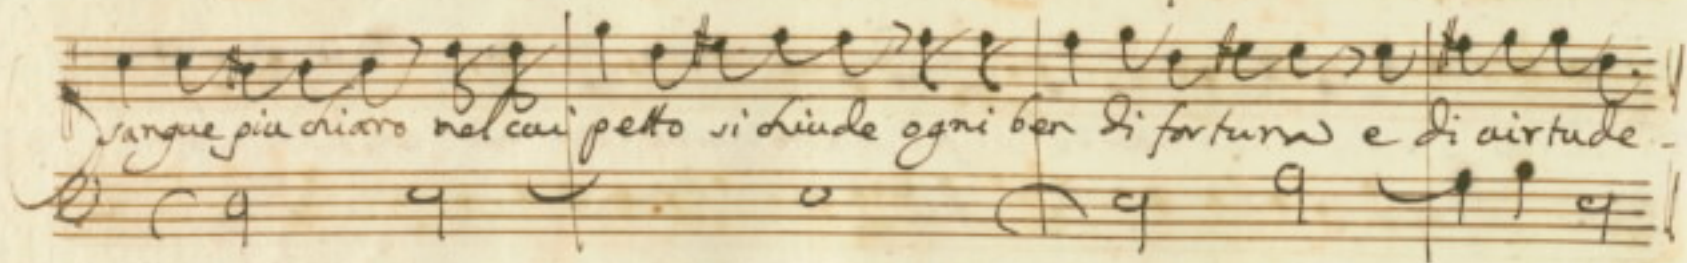 sangue piu chiaro nel cui petto si chiude ogni ben di fortuna e di virtude